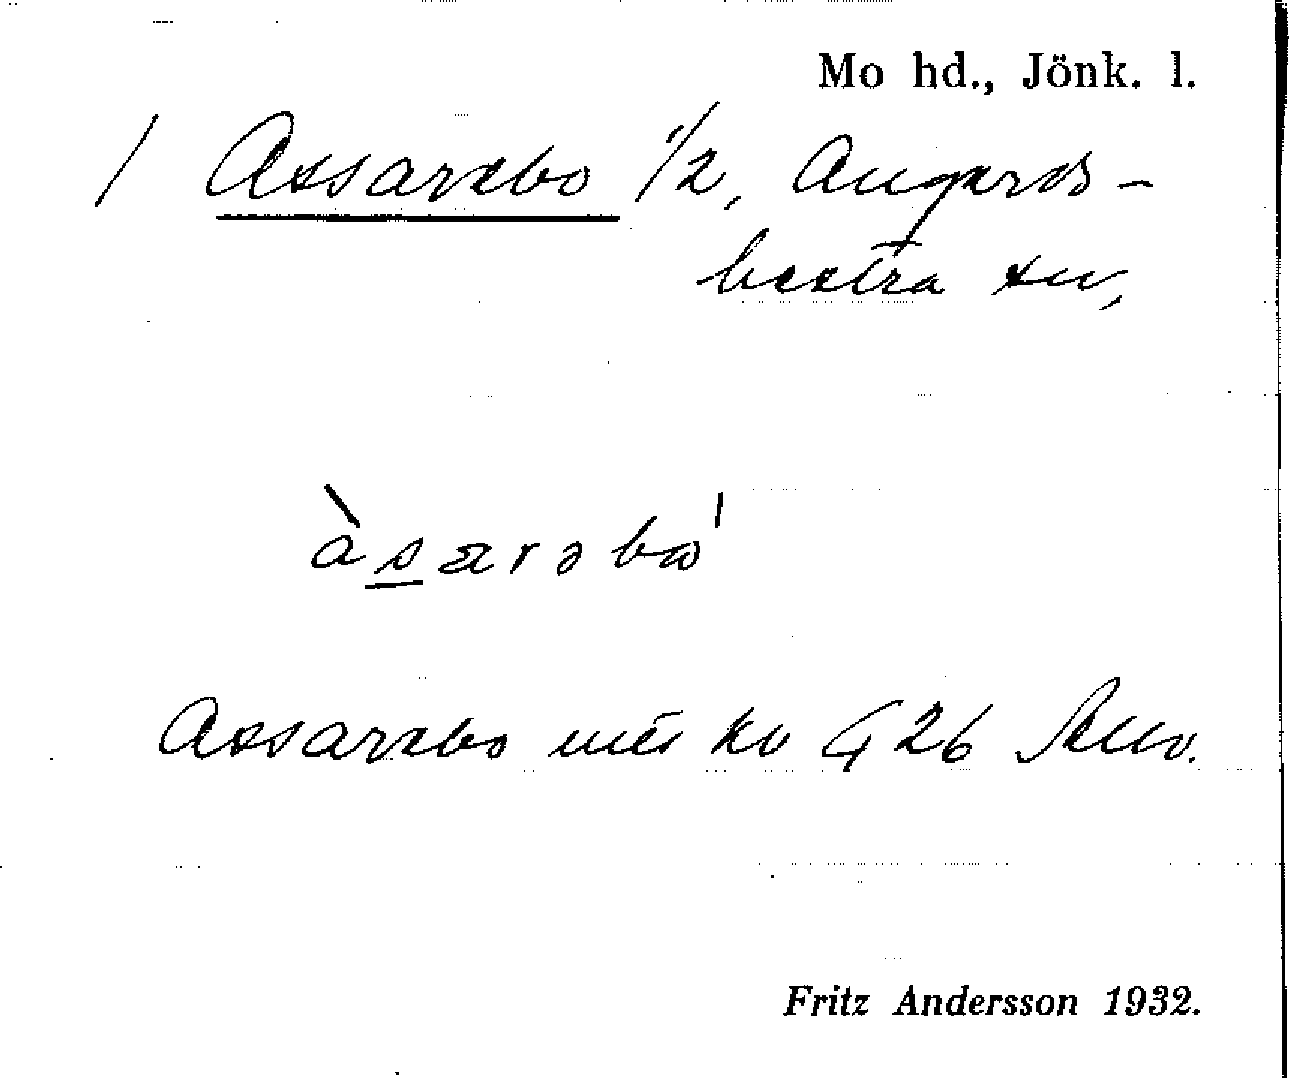 Mo hd., Jönk. l.
/ Assarebo 1/2, Angerds-
hestra sn,
àsarəbo'
Assarebo utti kv G 26 Allv.
Fritz Andersson 1932.